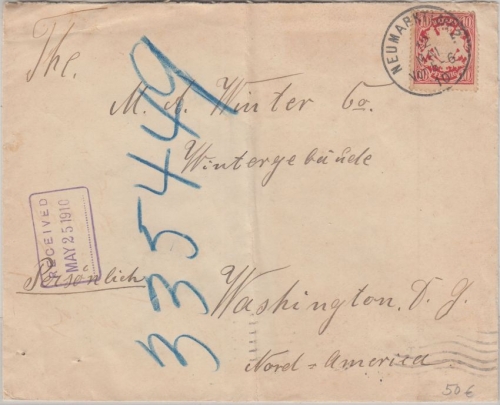 The.
M. A. Winter Co.
Wintergebäude
Persönlich
Washington, D. G.
Nord=America
335449
RECEIVED
MAY 25 1910
NEUMARKT
10
50€